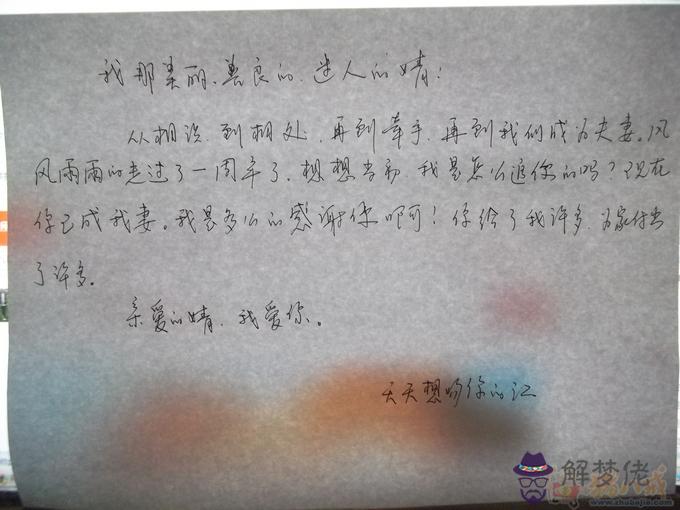 我那美丽、善良的、迷人的婧：
从相识、到相处、再到牵手、再到我们成为夫妻。风
风雨雨的走过了一周年了。想想当初、我是怎么追你的吗？现在
你已成我妻。我是多么的感谢你啊！你给了我许多、为家付出
了许多。
亲爱的婧、我爱你。
天天想吻你的江
解梦佬
www.zhubajie.com